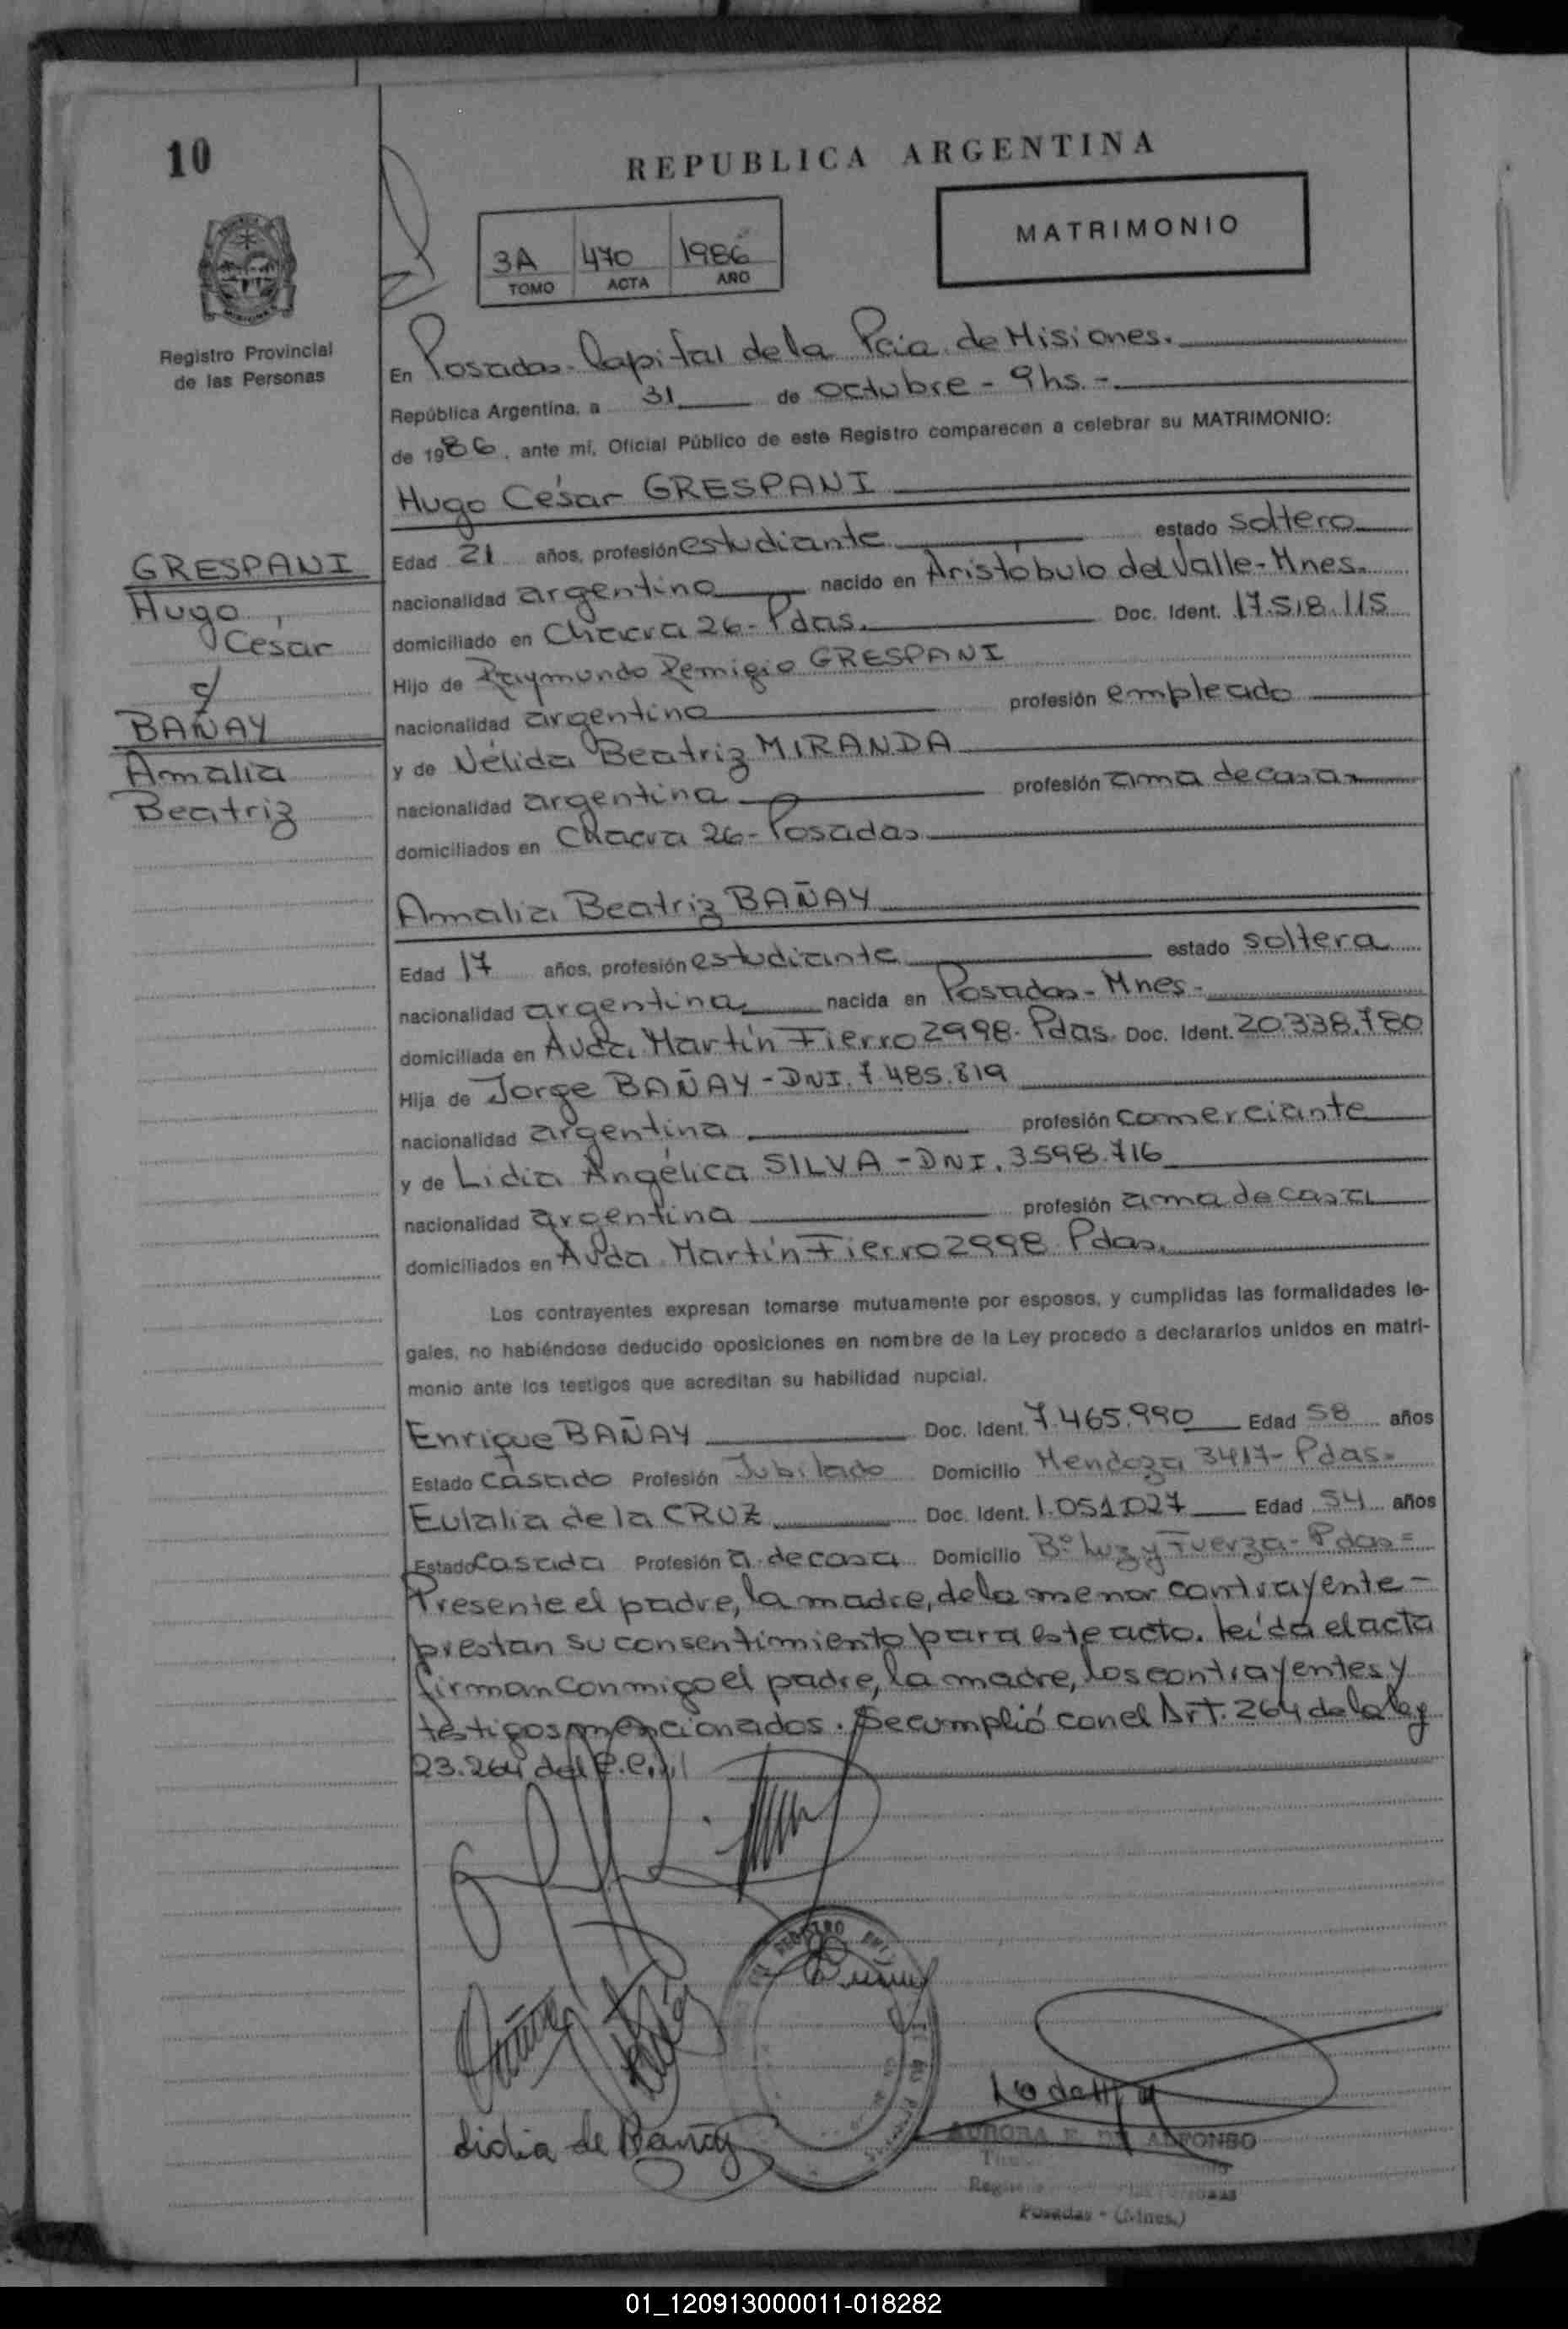 10
REPUBLICA ARGENTINA
MATRIMONIO
3A 470 1986
TOMO ACTA AÑO
Registro Provincial
de las Personas
GRESPANI
Hugo
Cesar
c/
BAÑAY
Amalia
Beatriz
En Posadas. Capital de la Pcia. de Misiones.
República Argentina, a 31 de octubre - 9 hs. -
de 1986, ante mí, Oficial Público de este Registro comparecen a celebrar su MATRIMONIO:
Hugo César GRESPANI
Edad 21 años, profesión estudiante estado soltero
nacionalidad argentino nacido en Aristóbulo del Valle - Mnes.
domiciliado en Chacra 26 - Pdas. Doc. Ident. 17.518.115
Hijo de Raymundo Remigio GRESPANI
nacionalidad argentino profesión empleado
y de Nélida Beatriz MIRANDA
nacionalidad argentina profesión ama de casa
domiciliados en Chacra 26 - Posadas
Amalia Beatriz BAÑAY
Edad 17 años, profesión estudiante estado soltera
nacionalidad argentina nacida en Posadas - Mnes -
domiciliada en Avda. Martín Fierro 2998. Pdas. Doc. Ident. 20.338.780
Hija de Jorge BAÑAY - DNI. 7.485.819
nacionalidad argentina profesión comerciante
y de Lidia Angélica SILVA - DNI. 3.598.716
nacionalidad argentina profesión ama de casa
domiciliados en Avda. Martín Fierro 2998. Pdas.
Los contrayentes expresan tomarse mutuamente por esposos, y cumplidas las formalidades le-
gales, no habiéndose deducido oposiciones en nombre de la Ley procedo a declararlos unidos en matri-
monio ante los testigos que acreditan su habilidad nupcial.
Enrique BAÑAY Doc. Ident. 7.465.990 Edad 58 años
Estado Casado Profesión Jubilado Domicilio Mendoza 3417 - Pdas.
Eulalia de la CRUZ Doc. Ident. 1.051.027 Edad 54 años
Estado Casada Profesión a. de casa Domicilio Bº Luz y Fuerza - Pdas =
Presente el padre, la madre, de la menor contrayente -
prestan su consentimiento para este acto. Leída el acta
firman conmigo el padre, la madre, los contrayentes y
testigos mencionados. Se cumplió con el Art. 264 de la ley
23.264 del C.C.
Lidia de Bañay
AURORA E. DE ALFONSO
Posadas - (Mnes.)
01_120913000011-018282